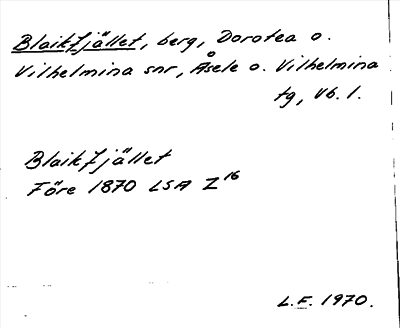 Blaikfjället, berg, Dorotea o.
Vilhelmina snr, Åsele o. Vilhelmina
tg, Vb. l.
Blaikfjället
Före 1870 LSA Z16
L.F. 1970.